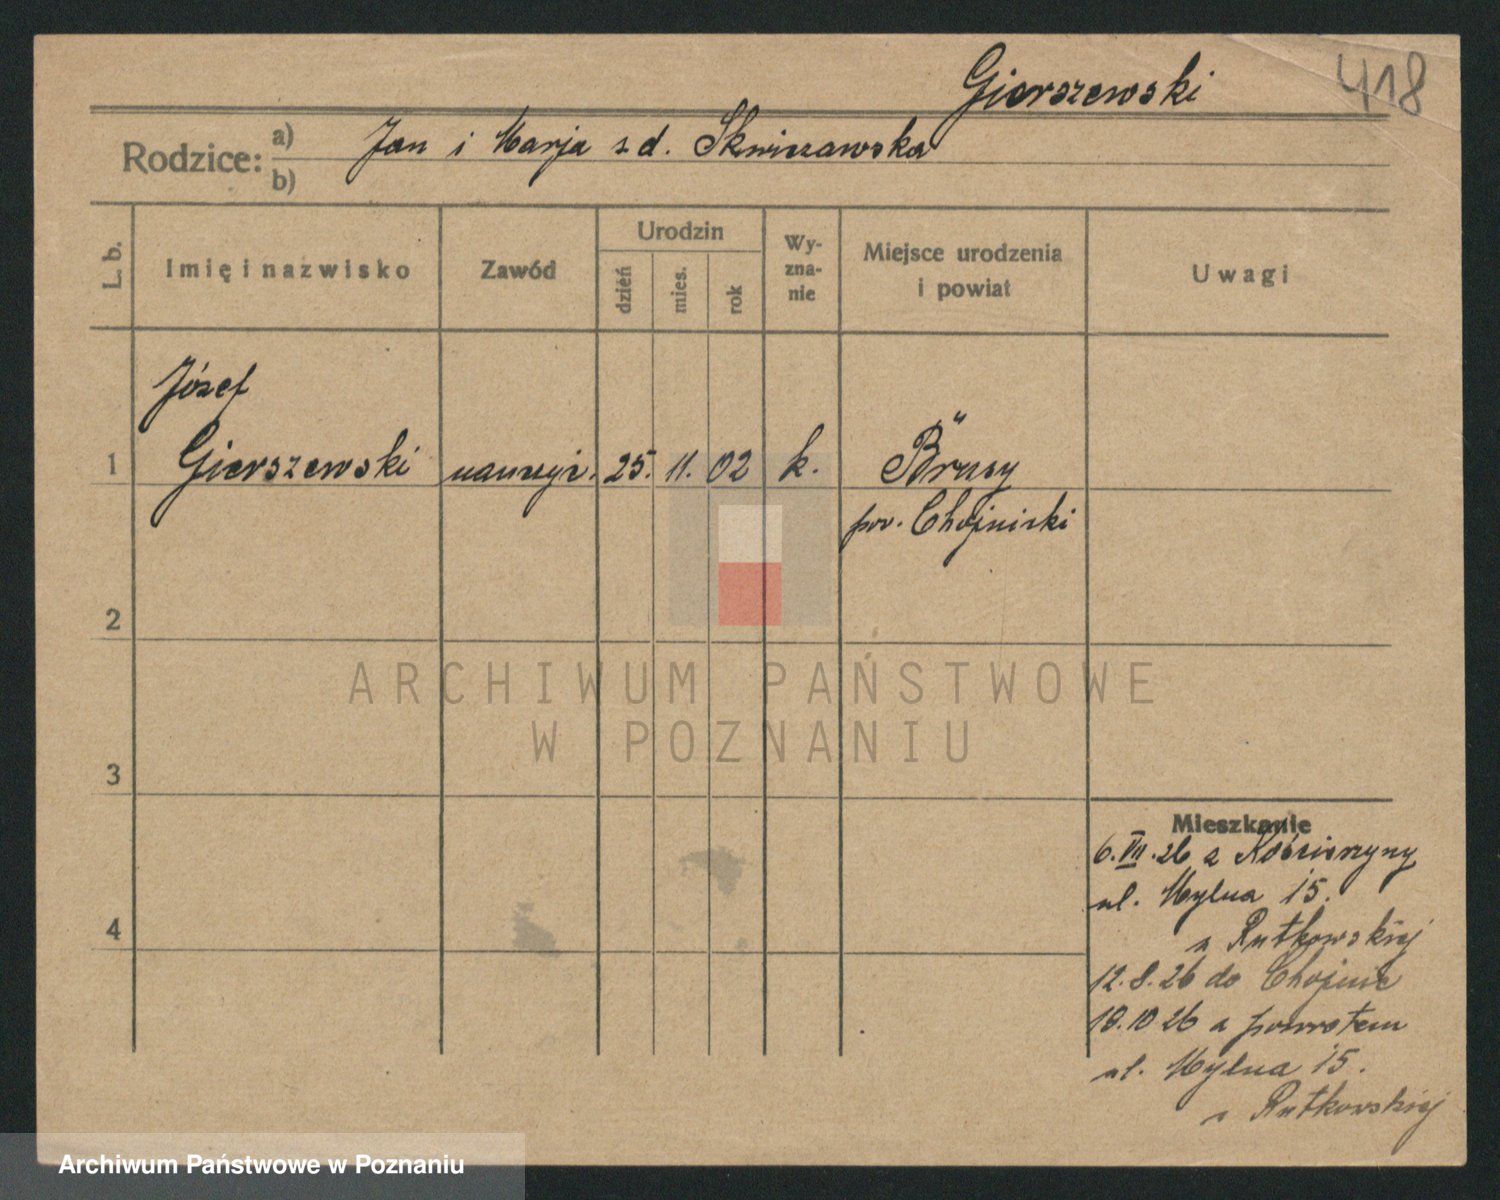 Gierszewski
418
Rodzice: a) Jan i Marja z d. Skwierawska
b)
L. b.
Imię i nazwisko
Zawód
Urodzin
dzień
mies.
rok
Wy-
zna-
nie
Miejsce urodzenia
i powiat
Uwagi
Józef
1 Gierszewski nauczyc. 25. 11. 02 k. Brusy
pow. Chojnicki
2
3
4
ARCHIWUM PAŃSTWOWE
W POZNANIU
Mieszkanie
6. VII. 26 z Kościerzyny
ul. Mylna 15.
u Rutkowskiej
12. 8. 26 do Chojnic
18. 10 26 z powrotem
ul. Mylna 15.
u Rutkowskiej
Archiwum Państwowe w Poznaniu